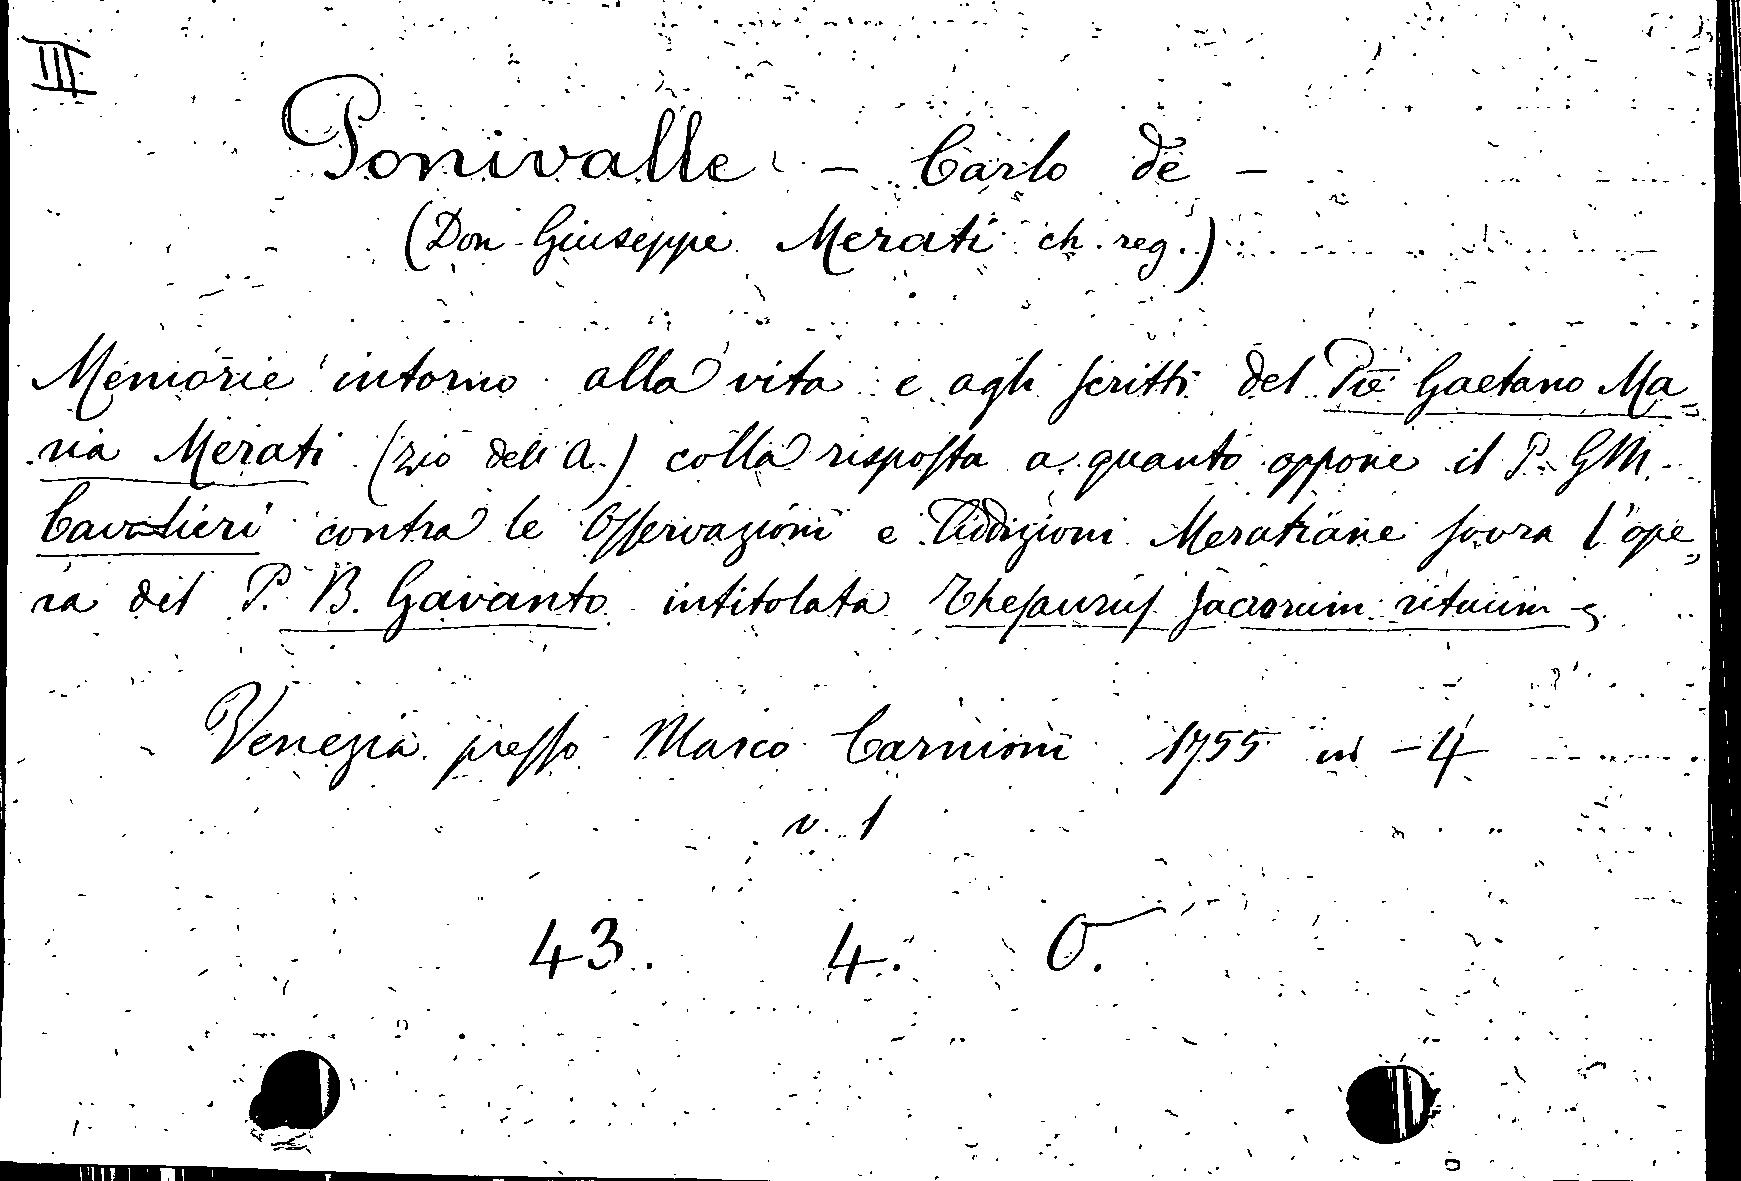 III
Ponivalle - Carlo de -
(Don Giuseppe Merati ch. reg.)
Memorie intorno alla vita e agli scritti del Pre Gaetano Ma=
ria Merati (zio dell'A.) colla risposta a quanto oppone il P. GM.
Cavalieri contra le Osservazioni e Addizioni Meratiane sovra l'ope=
ra del P. B. Gavanto intitolata Thesaurus sacrorum rituum -
Venezia presso Marco Carnioni 1755 in -4
v. 1
43. 4. O.